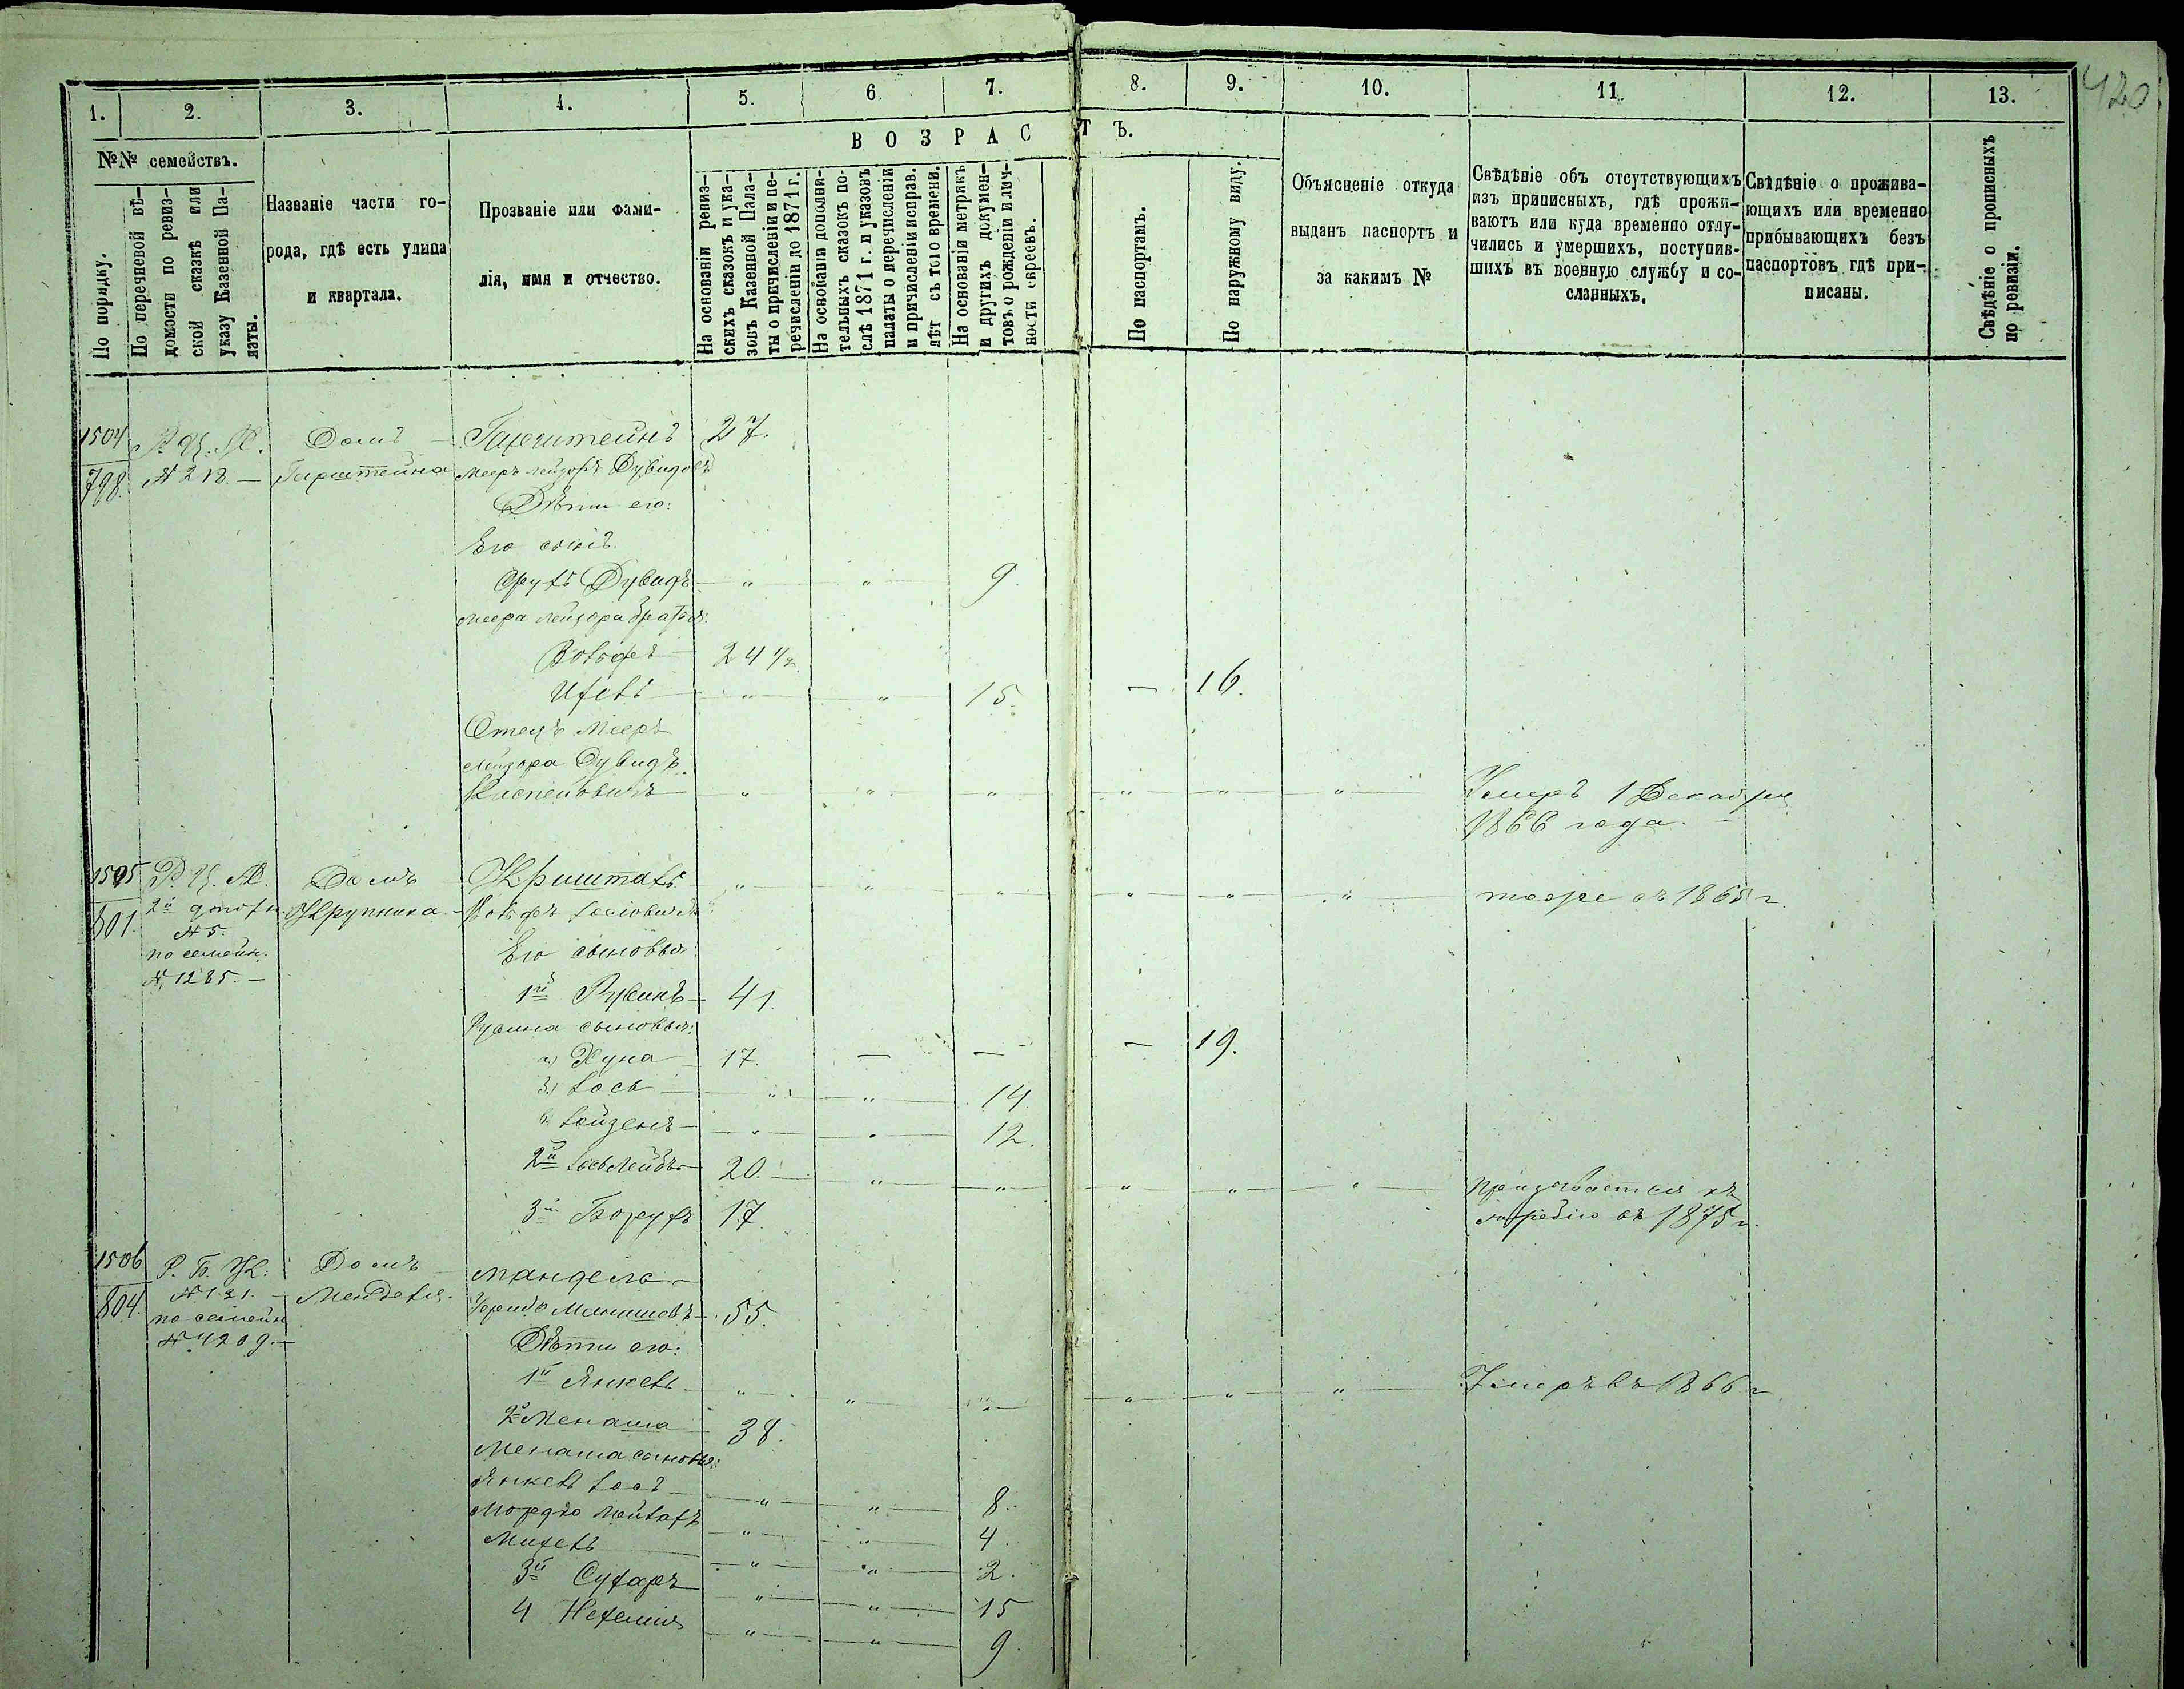 420
1. 2. 3. 4. 5. 6. 7. 8. 9. 10. 11. 12. 13.
№№ семействъ.
В О З Р А С Т Ъ.
По порядку.
По перечневой вѣ-
домости по ревиз-
ской сказкѣ или
указу Казенной Па-
латы.
Названіе части го-
рода, гдѣ есть улица
и квартала.
Прозваніе или фами-
лія, имя и отчество.
На основаніи ревиз-
скихъ сказокъ и ука-
зовъ Казенной Пала-
ты о причисленіи и пе-
речисленіи до 1871 г.
На основаніи дополни-
тельныхъ сказокъ по-
слѣ 1871 г. и указовъ
палаты о перечисленіи
и причисленіи исправ.
лѣт съ того времени.
На основаніи метрикъ
и другихъ докумен-
товъ о рожденіи и лич-
ности евреевъ.
По паспортамъ.
По наружному виду.
Объясненіе откуда
выданъ паспортъ и
за какимъ №
Свѣдѣніе объ отсутствующихъ
изъ приписныхъ, гдѣ прожи-
ваютъ или куда временно отлу-
чились и умершихъ, поступив-
шихъ въ военную службу и со-
сланныхъ.
Свѣдѣніе о прожива-
ющихъ или временно
прибывающихъ безъ
паспортовъ гдѣ при-
писаны.
Свѣдѣніе о прописныхъ
по ревизіи.
1504 Домъ 27.
798. № 218. Мееръ Лейзоръ Дувидовъ
Дѣти его:
Его сынъ
Дувидъ " " 9.
Меера Лейзора братья:
Вольфъ 24 1/2
Ихель " " 15. — 16.
Отецъ Меера
Лейзора Дувидъ
" " " " " " Умеръ 1 Декабря
1866 года.
1505 Р. Ц. М. Домъ Кришталь " " " " " " тоже въ 1865 г.
801. 2й Крупника Вольфъ Іосіовичъ
№ 5.
по семейн. Его сыновья:
№ 1285. 1й Рувинъ 41.
Рувина сыновья:
а) Хуна 17. — — — 19.
Іось " " 14.
" " 12.
2й Іось Лейбъ 20. " " " " "
3й Борухъ 17. въ 1875 г.
1506 Р. Б. К. Домъ Мандель
804. № 131. Менделя. 55.
по семейн.
№ 4209. Дѣти его:
1й Янкель " " " " " " Умеръ въ 1866 г.
2й Менаша 38.
Менаша сыновья:
Янкель Іось " " 8.
Мордко " " 4.
Михель " " 2.
3й Сухаръ " " 15
4 Нехемія " " 9.